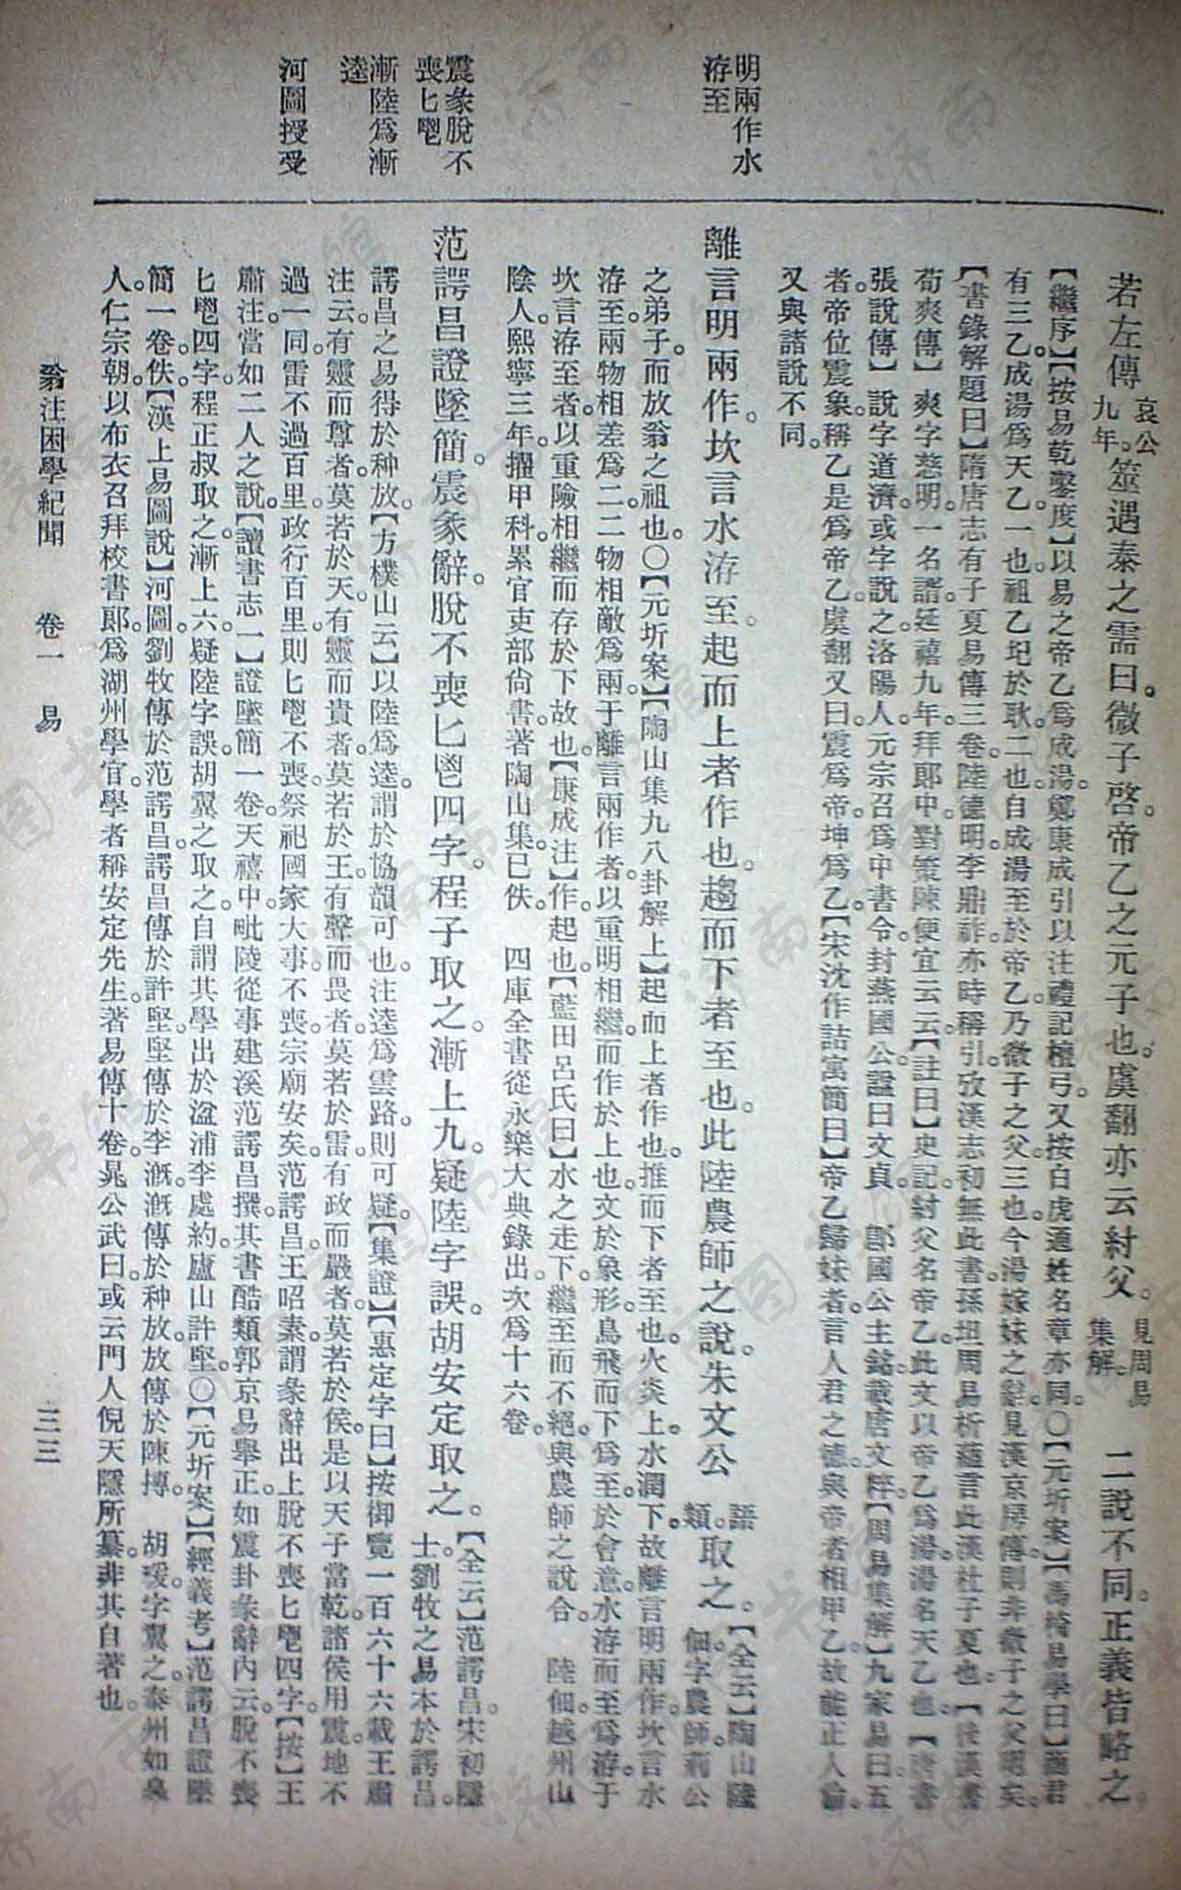 明兩作水
洊至
震彖脫不
喪匕鬯
漸陸爲漸
逵
河圖授受
若左傳哀公九年。筮遇泰之需曰。微子啓。帝乙之元子也。虞翻亦云紂父。見周易集解。二說不同。正義皆略之
【繼序】【按易乾鑿度】以易之帝乙爲成湯。鄭康成引以注禮記檀弓。又按白虎通姓名章亦同。○【元圻案】【馮椅易學曰】商君
有三乙。成湯爲天乙。一也。祖乙圯於耿。二也。自成湯至於帝乙。乃微子之父。三也。今湯嫁妹之辭。見漢京房傳。則非微子之父明矣。
【書錄解題曰】隋唐志有子夏易傳三卷。陸德明李鼎祚亦時稱引。攷漢志初無此書。孫坦周易析蘊言此漢杜子夏也。【後漢書
荀爽傳】爽字慈明。一名諝。延禧九年。拜郞中。對策陳便宜云云。【註曰】史記紂父名帝乙。此文以帝乙爲湯。湯名天乙也。【唐書
張說傳】說字道濟。或字說之。洛陽人。元宗召爲中書令。封燕國公。諡曰文貞。鄎國公主銘。載唐文粹。【周易集解】九家易曰。五
者帝位。震象稱乙。是爲帝乙。虞翻又曰。震爲帝。坤爲乙。【宋沈作詰寓簡曰】帝乙歸妹者。言人君之德。與帝者相甲乙。故能正人倫。
又與諸說不同。
離言明兩作。坎言水洊至。起而上者作也。趨而下者至也。此陸農師之說。朱文公語類。取之。【全云】陶山陸佃。字農師。荊公
之弟子。而放翁之祖也。○【元圻案】【陶山集九八卦解上】起而上者作也。推而下者至也。火炎上。水潤下。故離言明兩作。坎言水
洊至。兩物相差爲二。二物相敵爲兩。于離言兩作者。以重明相繼。而作於上也。文於象形。鳥飛而下爲至。於會意。水洊而至爲洊。于
坎言洊至者。以重險相繼。而存於下故也。【康成注】作。起也。【藍田呂氏曰】水之走下。繼至而不絕。與農師之說合。 陸佃。越州山
陰人。熙寧三年。擢甲科。累官吏部尙書。著陶山集。已佚。 四庫全書從永樂大典錄出。次爲十六卷。
范諤昌證墜簡。震彖辭。脫不喪匕鬯四字。程子取之。漸上九。疑陸字誤。胡安定取之。【全云】范諤昌。宋初隱士。劉牧之易本於諤昌。
諤昌之易得於种放。【方樸山云】以陸爲逵。謂於協韻可也。注逵爲雲路。則可疑。【集證】【惠定字曰】按御覽一百六十六載王肅
注云。有靈而尊者。莫若於天。有靈而貴者。莫若於王。有聲而畏者。莫若於雷。有政而嚴者。莫若於侯。是以天子當乾。諸侯用震。地不
過一同。雷不過百里。政行百里。則匕鬯不喪。祭祀國家大事。不喪。宗廟安矣。范諤昌。王昭素。謂彖辭出上脫不喪匕鬯四字。【按】王
肅注當如二人之說。【讀書志一】證墜簡一卷。天禧中。毗陵從事建溪范諤昌撰。其書酷類郭京易舉正。如震卦彖辭內云。脫不喪
匕鬯四字。程正叔取之。漸上六。疑陸字誤。胡翼之取之。自謂其學出於湓浦李處約。廬山許堅。○【元圻案】【經義考】范諤昌證墜
簡一卷。佚。【漢上易圖說】河圖。劉牧傳於范諤昌。諤昌傳於許堅。堅傳於李漑。漑傳於种放。放傳於陳摶。 胡瑗。字翼之。泰州如皋
人。仁宗朝。以布衣召拜校書郞。爲湖州學官。學者稱安定先生。著易傳十卷。晁公武曰。或云門人倪天隱所纂。非其自著也。
翁注困學紀聞 卷一 易 三三